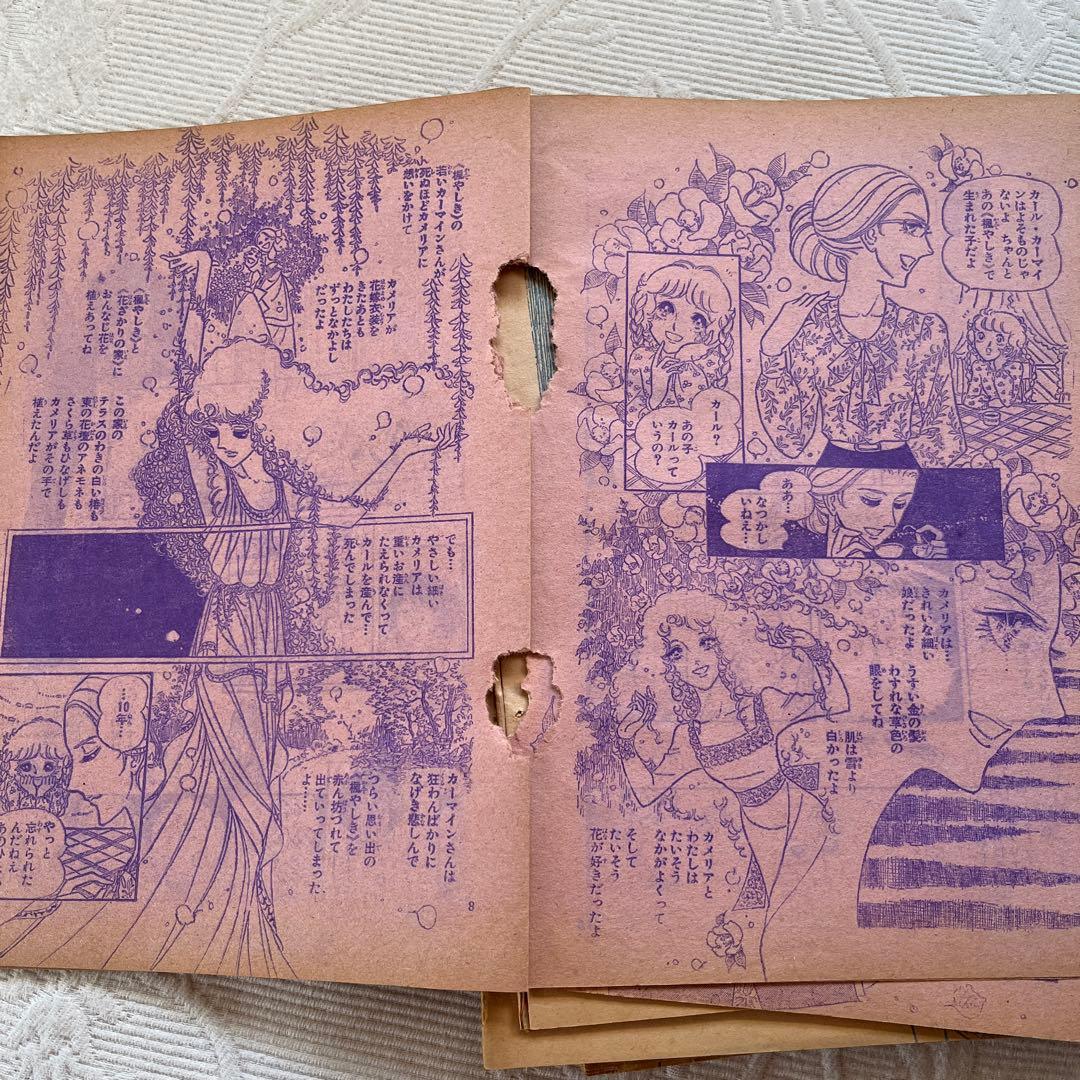 カール・カーマイ
ンはよそものじゃ
ないよ　ちゃんと
あの《楓やしき》で
生まれた子だよ
カール？
あの子
カールって
いうの？
ああ…
なつかし
いねえ…
カメリアは…
きれいな細い
娘だったよ
うすい金の髪
わすれな草色の
眼をしてね
肌は雪より
白かったよ
カメリアと
わたしは
たいそう
なかがよくって
そして
たいそう
花が好きだったよ
《楓やしき》の
若いカーマインさんが
死ぬほどカメリアに
想いをかけて
カメリアが
花嫁衣裳を
きたあとも
わたしたちは
ずっとなかよし
だったよ
《楓やしき》と
《花ざかりの家》に
おんなじ花を
植えあってね
この家の
テラスのわきの白い椿も
東の花壇のアネモネも
さくら草もひなげしも
カメリアがその手で
植えたんだよ
でも…
やさしい細い
カメリアは
重いお産に
たえられなくって
カールを産んで…
死んでしまった
カーマインさんは
狂わんばかりに
なげき悲しんで
つらい思い出の
《楓やしき》を
赤ん坊つれて
出ていってしまった
よ……
…10年…
やっと
忘れられた
んだねえ
8